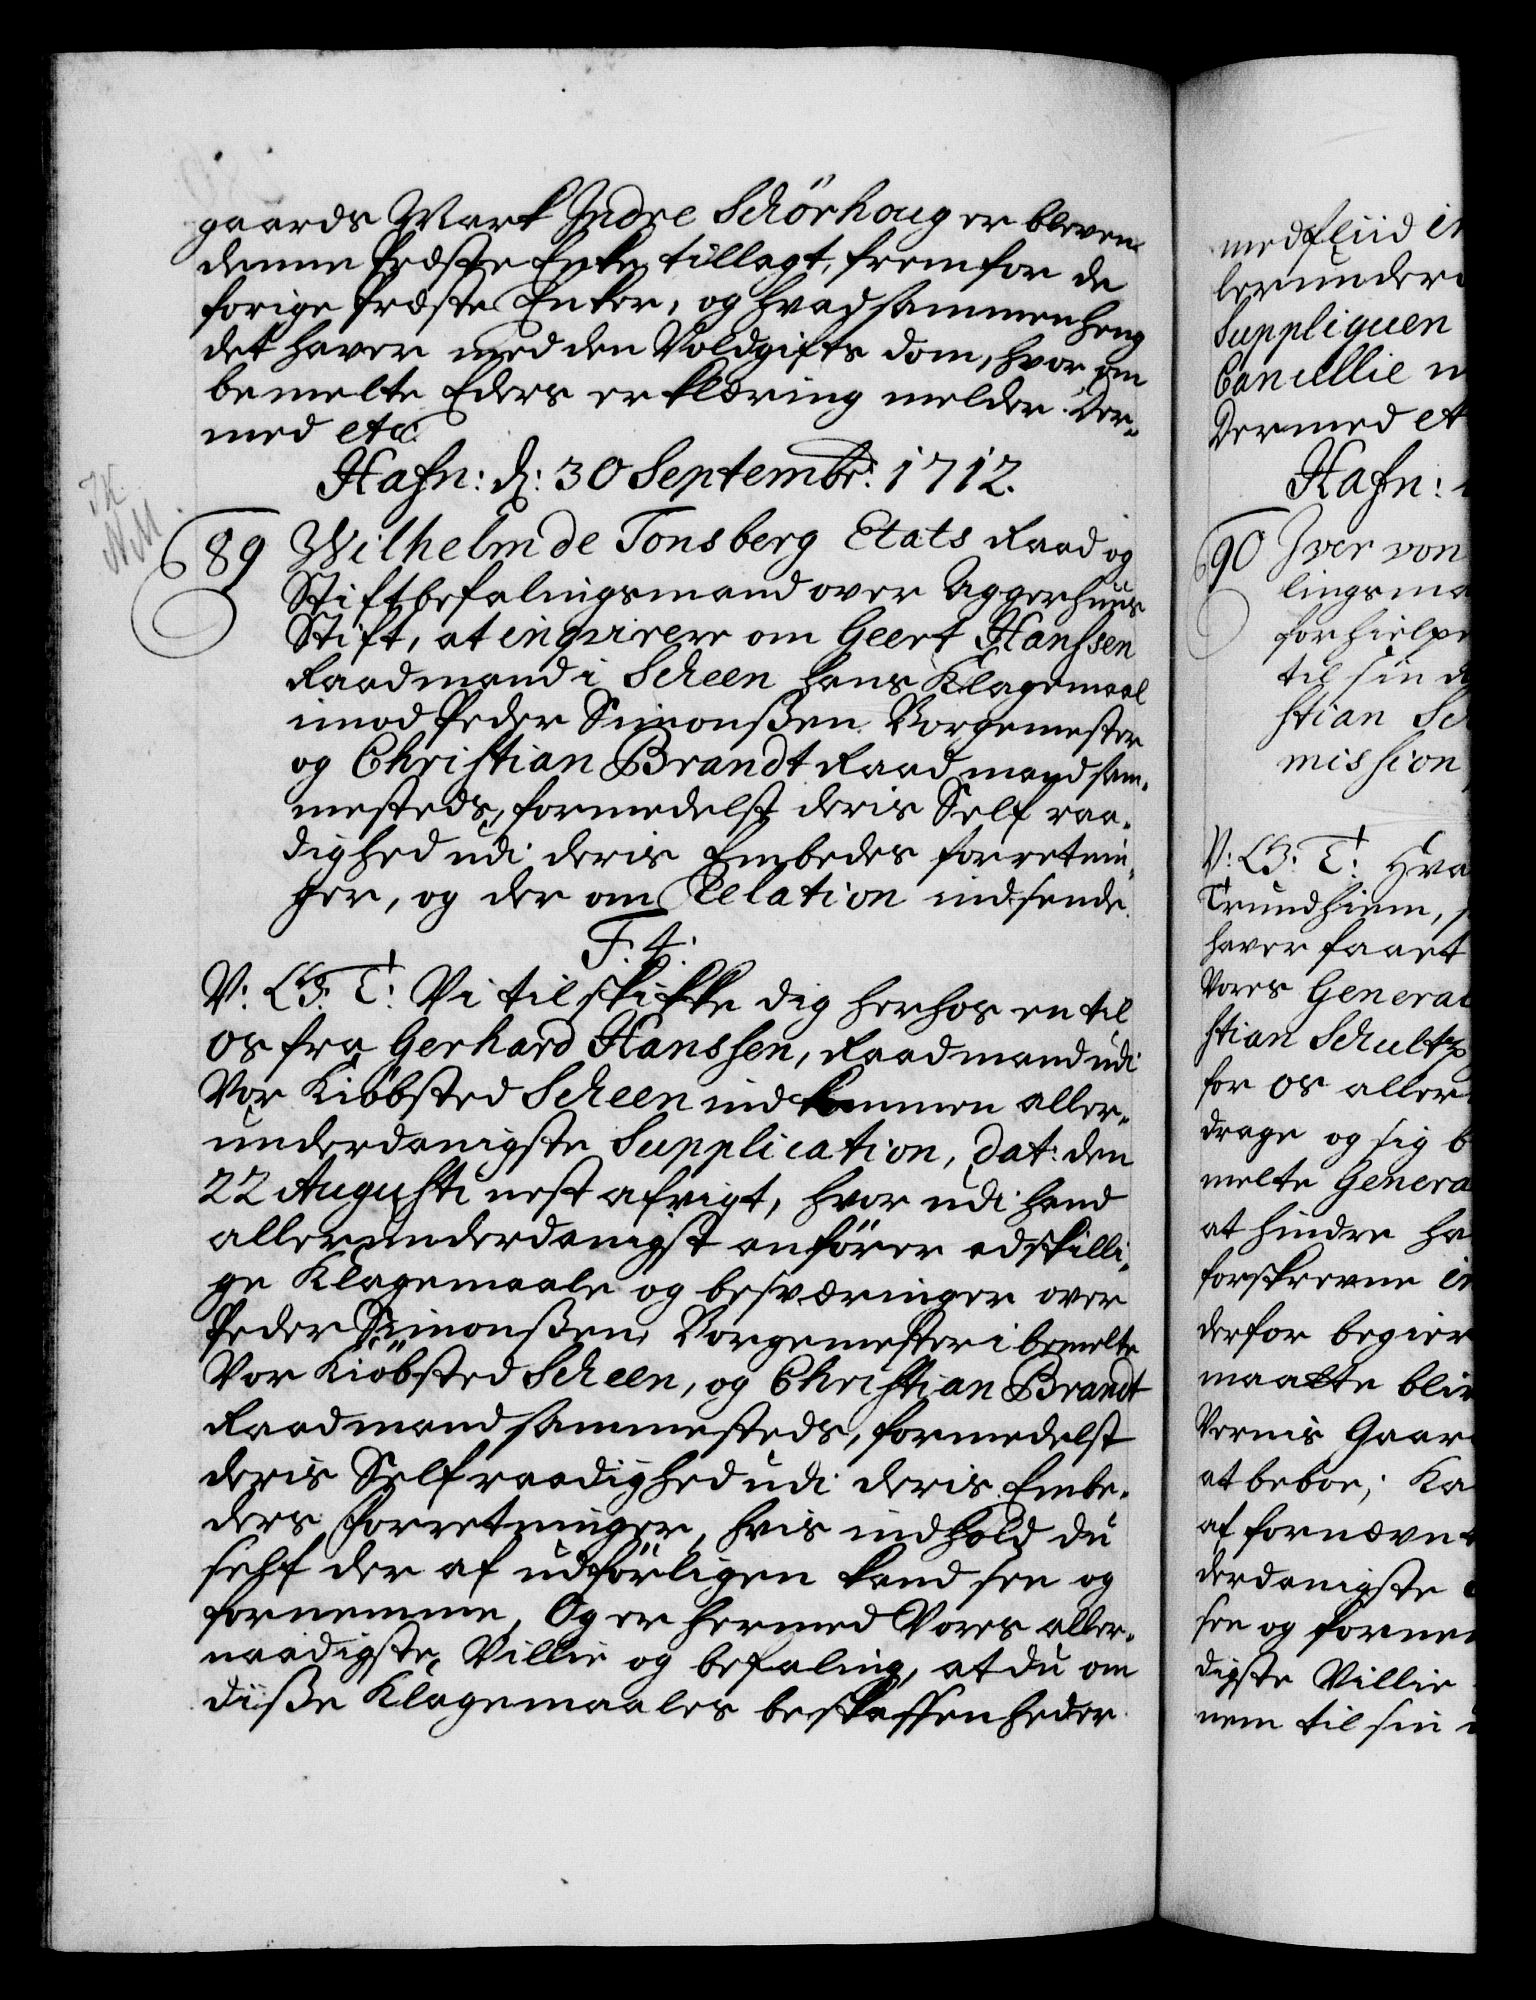 gaards Mark Indre Schörhoug er bleven
denne Præste Enke tillagt, fremfor de
forige Præste Enker, og hvad sammenheng
det haver med den Voldgifts dom, hvor om
bemelte Eders erklæring melder. Der-
med etc:
Hafn: d: 30 Septembr: 1712.
89 Wilhelm de Tonsberg Etats Raad og
Stiftbefalingsmand over Aggerhuus
Stift, at inqvirere om Geert Hanssen
Raadmand i Scheen hans Klagemaal
imod Peder Simonßen Borgemester
og Christian Brandt Raadmand sam-
mesteds, formedelst deris Self raa-
dighed udi deris Embedes forretnin-
ger, og der om Relation indsende.
F. 4.
V: G: T: Vi tilskikke dig herhos en til
os fra Gerhard Hanssen, Raadmand udi
Vor Kiöbsted Scheen indkommen aller-
underdanigste Supplication, dat: den
22 Augusti nest afvigt, hvor udi hand
allerunderdanigst anförer adskilli-
ge Klagemaale og besværinger over
Peder Simonßen, Borgemester i bemelte
Vor Kiöbsted Scheen, og Christian Brandt
Raadmand sammesteds, formedelst
deris Selfraadighed udi deris Embe-
ders Forretninger, hvis indhold du
self der af udförligen kand see og
fornemme, Og er hermed Vores aller-
naadigste Villie og befaling, at du om
diße Klagemaales beskaffenheder
med fliid in
lerunder
Suppliquen
Cancellie
Dermed et
Hafn:
90 Iver von
lingsma
forhielpe
til sin d
stian Sch
mission
V: G: T: Hva
Trundhiem,
haver faaet
Vores General
stian Schultz
for os aller
drage og sig b
melte Genera
at hindre ha
forskrevne in
derfor begier
maatte bliv
Vernis Gaar
at beboe; Ka
af fornævnt
derdanigste
see og forne
digste Villie
nem til sin